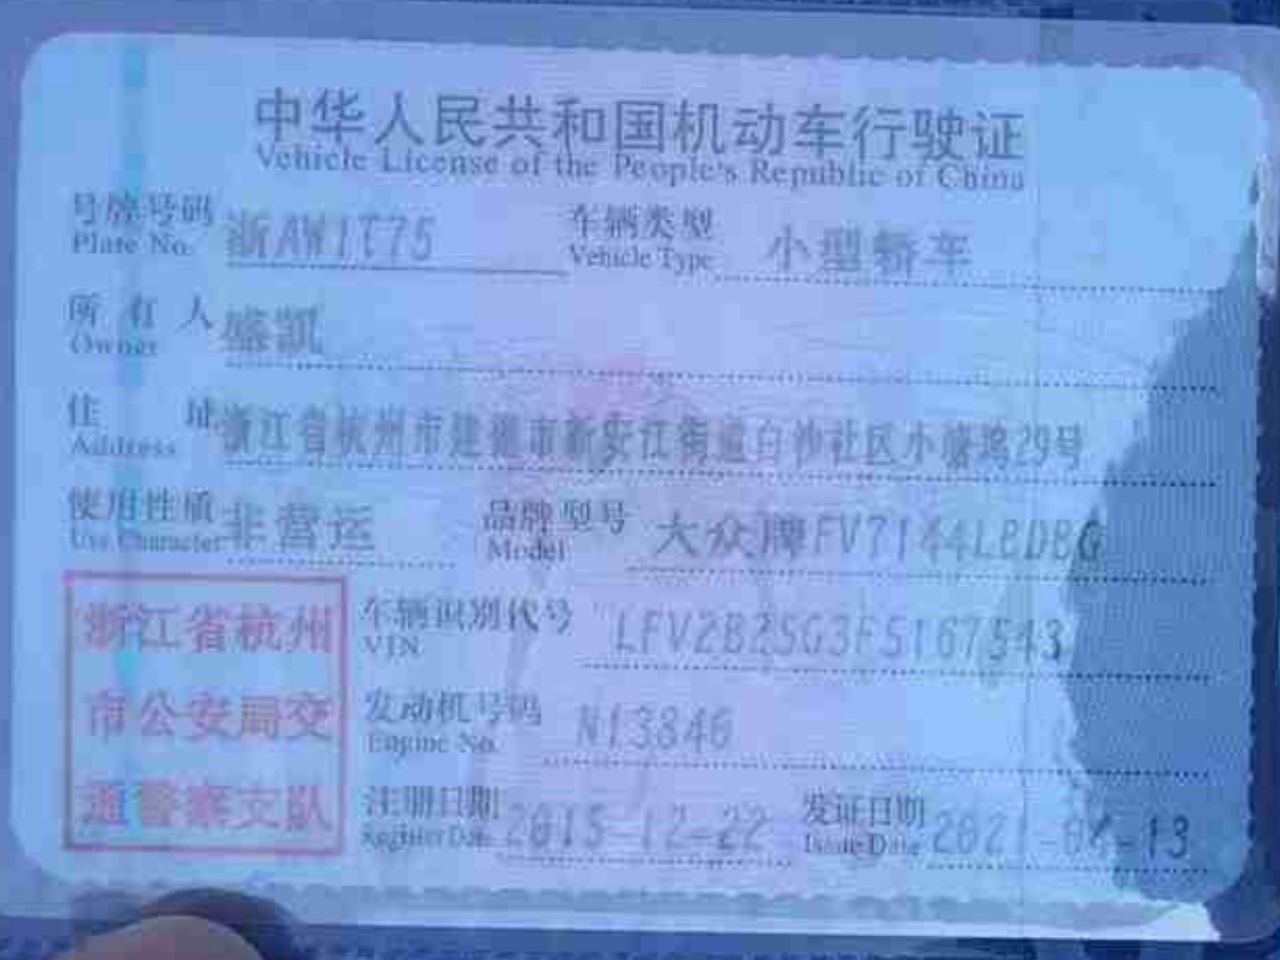 中华人民共和国机动车行驶证
Vehicle License of the People's Republic of China
号牌号码 浙AW1T75 车辆类型 小型轿车
Plate No. Vehicle Type
所有人 盛凯
Owner
住址 浙江省杭州市建德市新安江街道白沙社区小塘坞29号
Address
使用性质 非营运 品牌型号 大众牌FV7144LBDBG
Use Character Model
浙江省杭州 车辆识别代号 LFV2B25G3F5167543
VIN
市公安局交 发动机号码 N13846
Engine No.
通警察支队 注册日期 2015-12-22 发证日期 2021-04-13
Register Date Issue Date